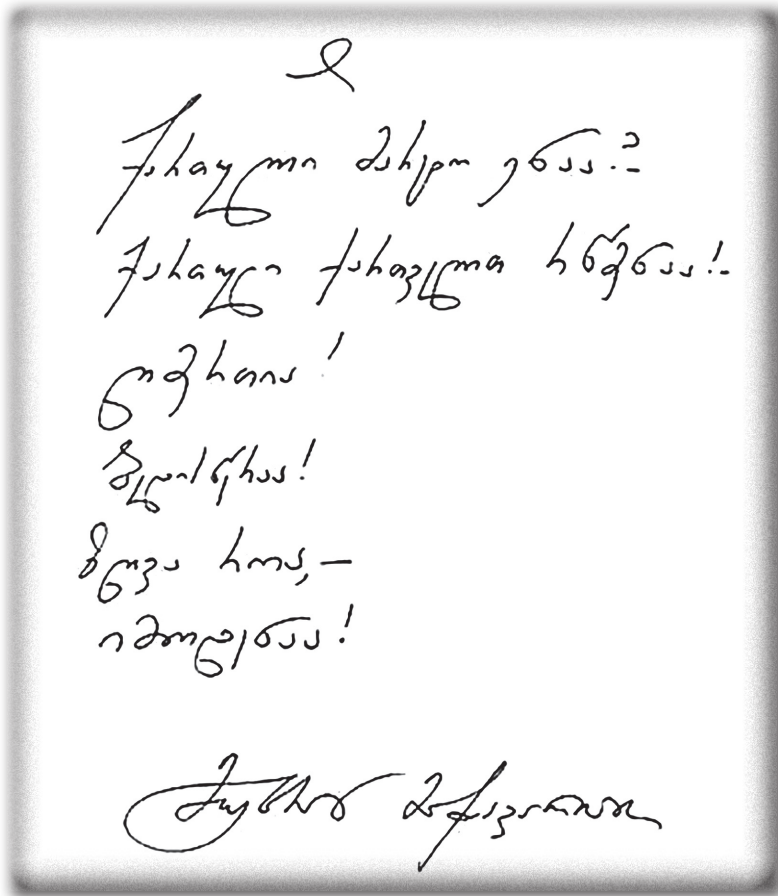 ქართული მარტო ენაა?-
ქართული ქართველთ რწმენაა!-
ღმერთია!
ბედისწერაა!
ზღვა როა,–
იმოდენაა!
მუხრან მაჭავარიანი